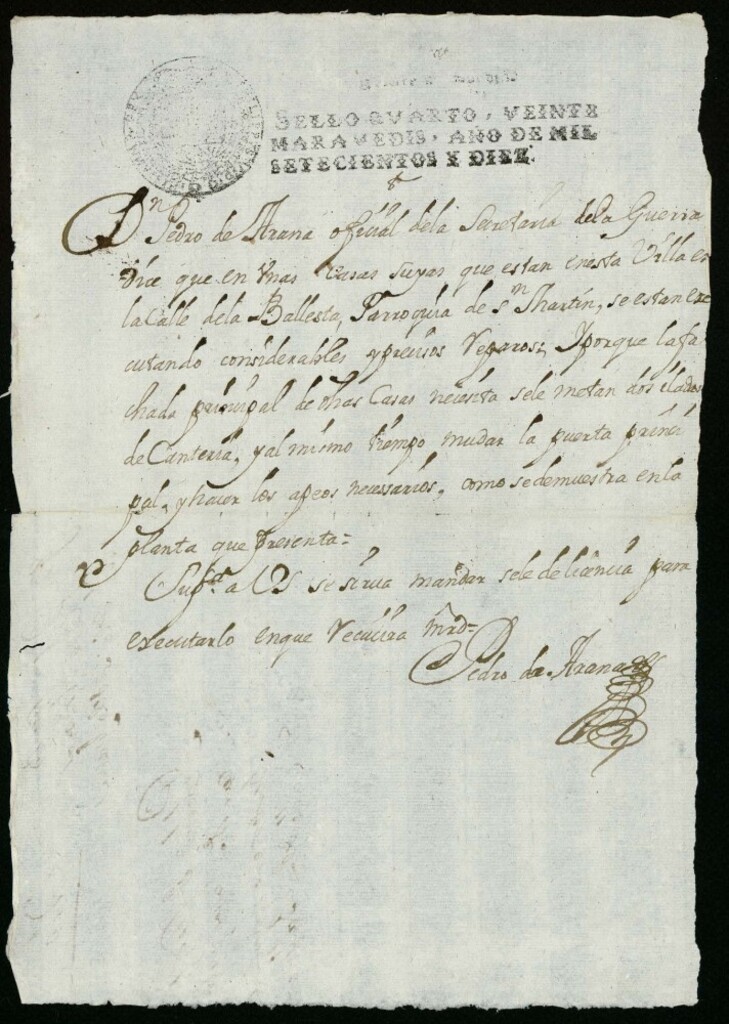 SELLO QVARTO, VEINTE
MARAVEDIS, AÑO DE MIL
SETECIENTOS Y DIEZ.
Dn Pedro de Arana oficial dela Secretaria dela Guerra
dice que en vnas casas suyas que estan enesta Villa en
la Calle dela Ballesta, Parroquia de sn Martin, se estan exe
cutando considerables y precisos reparos; Y porque la fa
chada principal de dhas Casas necesita sele metan dos
de Canteria, y al mismo tiempo mudar la puerta princi
pal, y hacer los apeos necessarios, como se demuestra en la
planta que presenta=
Suppca a VS se sirua mandar sele de licencia para
executarlo enque reciuira mrd=
Pedro de Arana